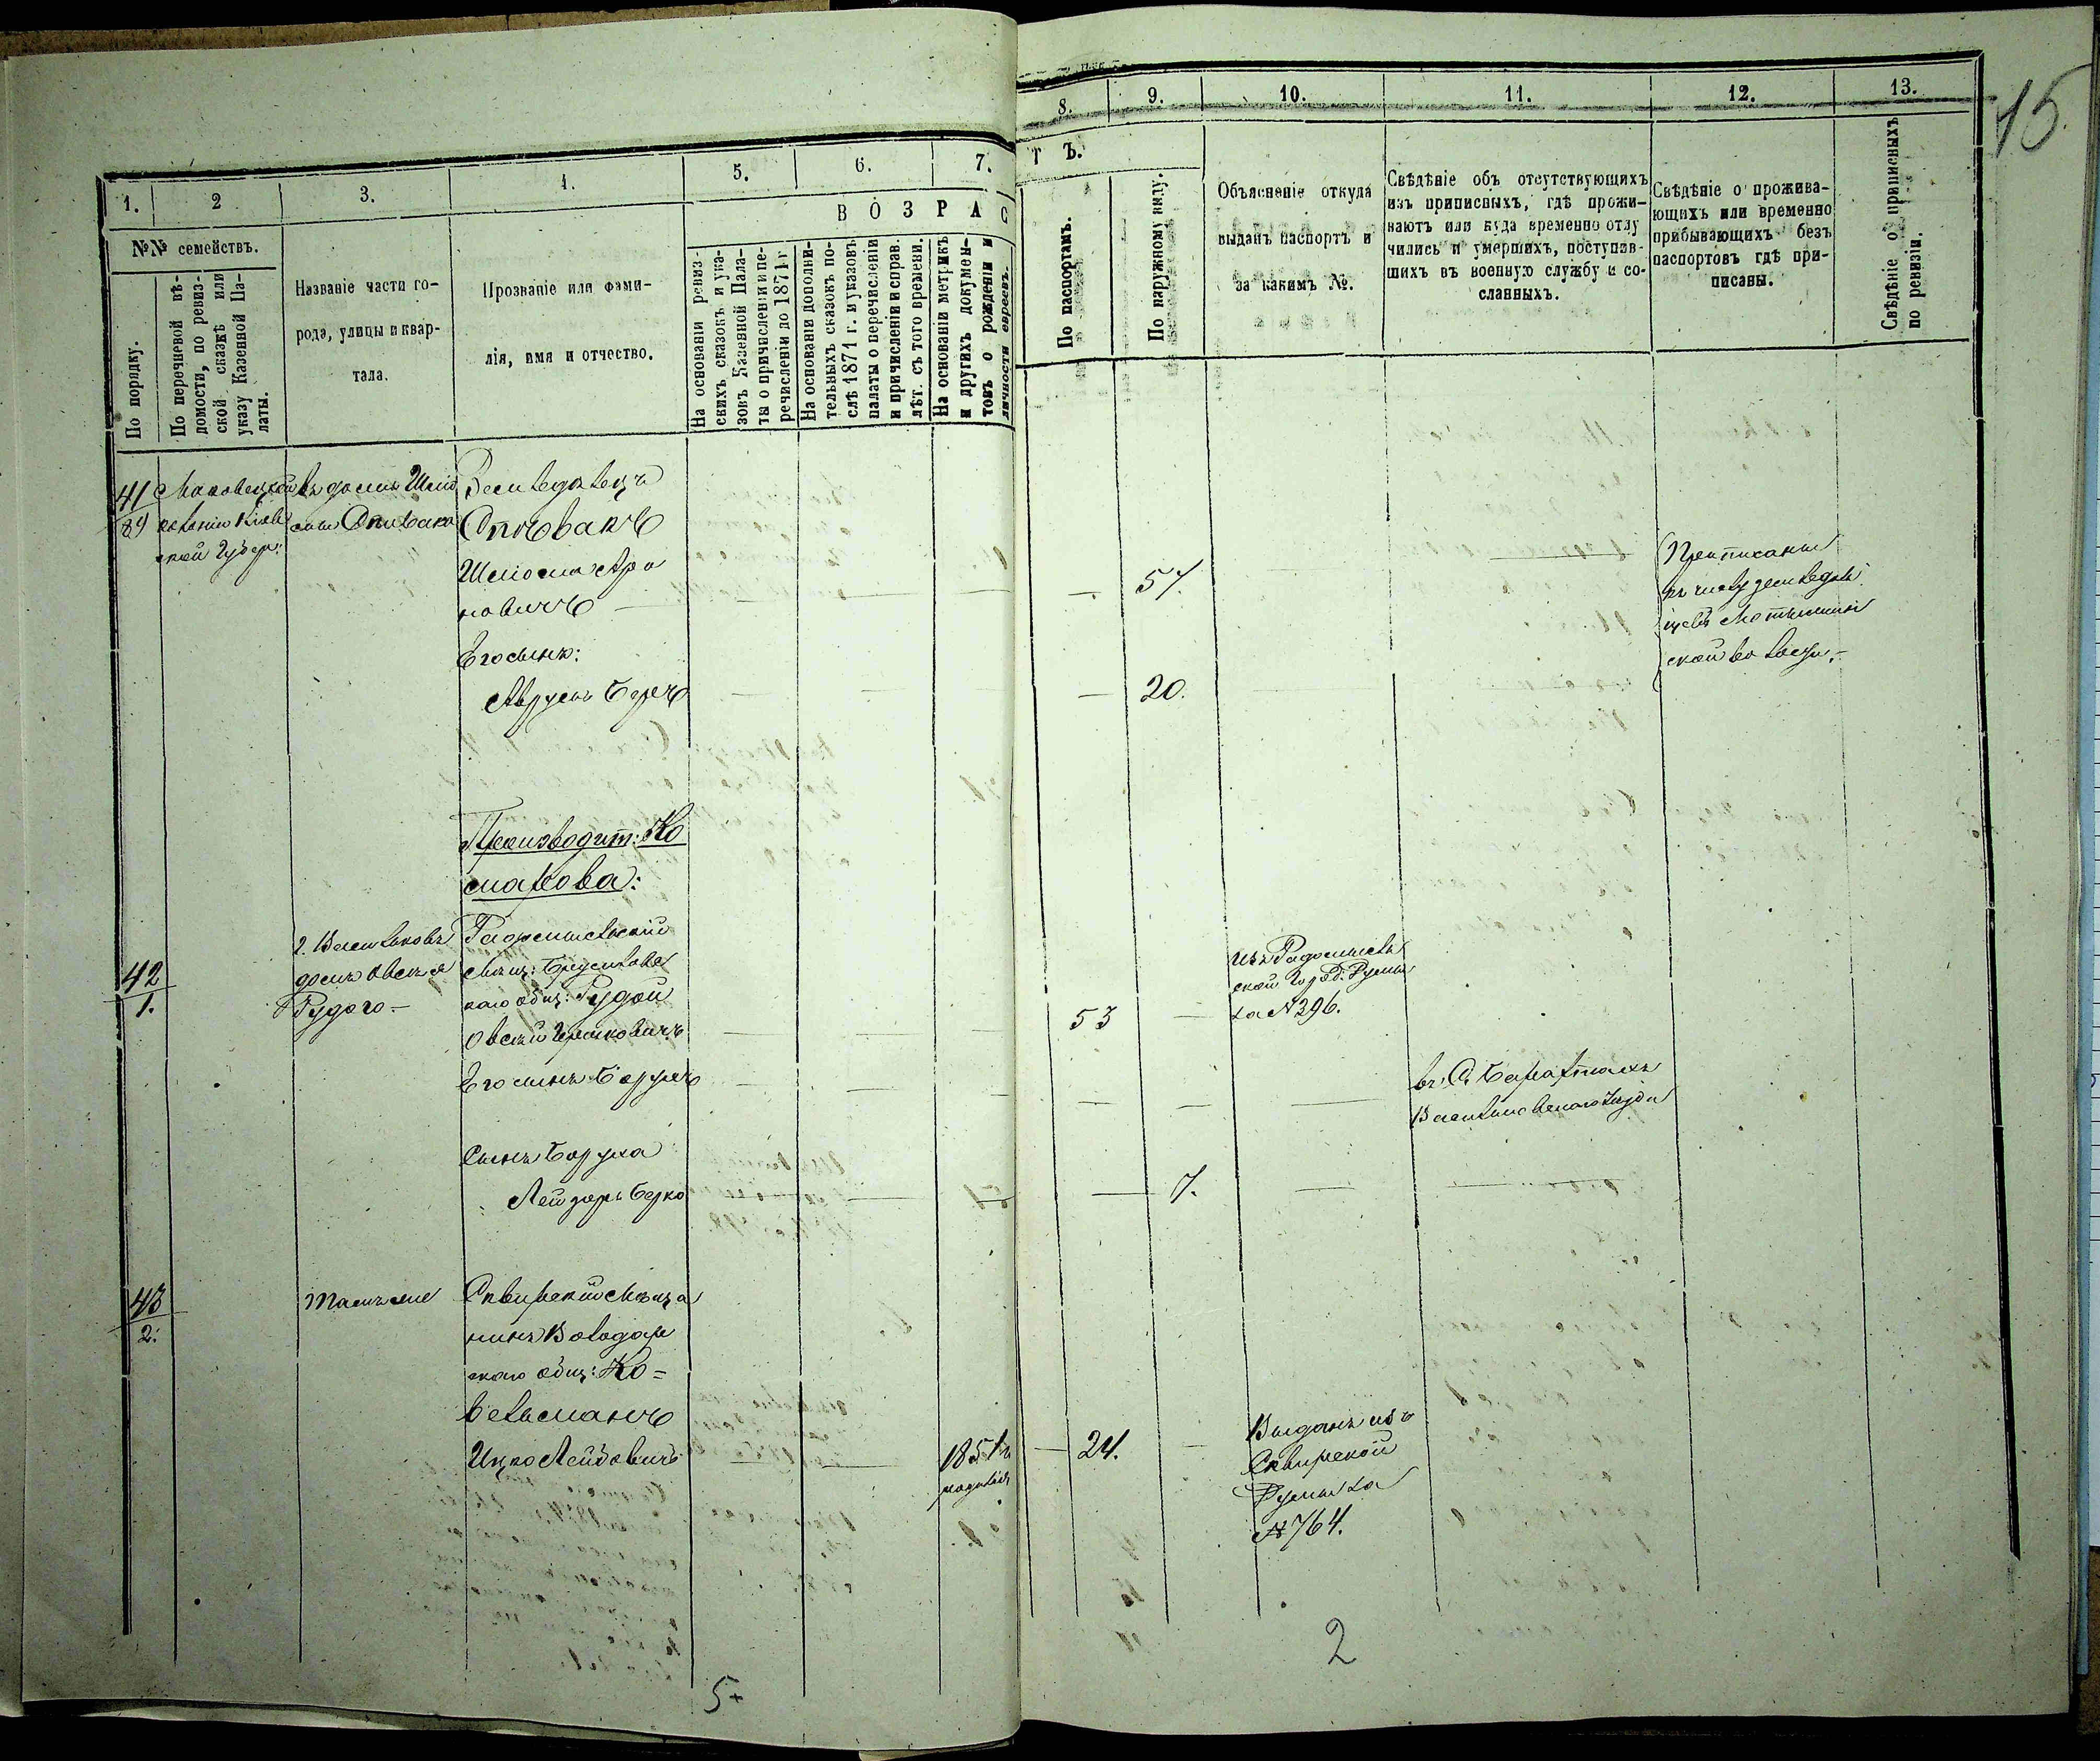 15.
1.
2
3.
4.
5.
6.
7.
8.
9.
10.
11.
12.
13.
В О З Р А С
Т Ъ.
№№ семействъ.
По порядку.
По перечневой вѣ-
домости, по ревиз-
ской сказкѣ или
указу Казенной Па-
латы.
Названіе части го-
рода, улицы и квар-
тала.
Прозваніе или фами-
лія, имя и отчество.
На основаніи ревиз-
скихъ сказокъ и ука-
зовъ Казенной Пала-
ты о причисленіи и пе-
речисленіи до 1871 г
На основаніи дополни-
тельныхъ сказокъ по-
слѣ 1871 г. и указовъ
палаты о перечисленіи
и причисленіи и справ.
лѣт. съ того времени.
На основаніи метрикъ
и другихъ докумен-
товъ о рожденіи и
личности евреевъ.
По паспортамъ.
По наружному виду.
Объясненіе откуда
выданъ паспортъ и
за какимъ №.
Свѣдѣніе объ отсутствующихъ
изъ приписныхъ, гдѣ прожи-
ваютъ или куда временно отлу
чились и умершихъ, поступив-
шихъ въ военную службу и со-
сланныхъ.
Свѣдѣніе о прожива-
ющихъ или временно
прибывающихъ безъ
паспортовъ гдѣ при-
писаны.
Свѣдѣніе о приписныхъ
по ревизіи.
41
89
Кіев
ской Губер:
въ домѣ Шліо
мы Спивака
Земледѣлецъ
Спѣвакъ
Шліома Аро
новичъ
57.
Приписаны
къ числу земледѣль
цевъ
ской волости.
Его сынъ:
Аврумъ Беръ
20.
Производит: Ко
марова:
42
1.
г. Васильковъ
домъ Овсѣя
Рудого
Радомысльскій
Мѣщ: Брусиловс
каго общ: Рудой
Овсѣй Гершковичъ
53
изъ Радомысль
ской Город. Думы
за №396.
Его сынъ Борухъ
въ С.
Васильковскаго Уѣзда
Сынъ Боруха
Лейзеръ Берко
7.
43
2.
тамъ же
Сквирскій Мѣща
нинъ Володар
скаго общ: Ко=
вельманъ
Ицко Лейбовичъ
1851 г.
родился
24.
Выданъ изъ
Сквирской
Думы за
№764.
5+
2